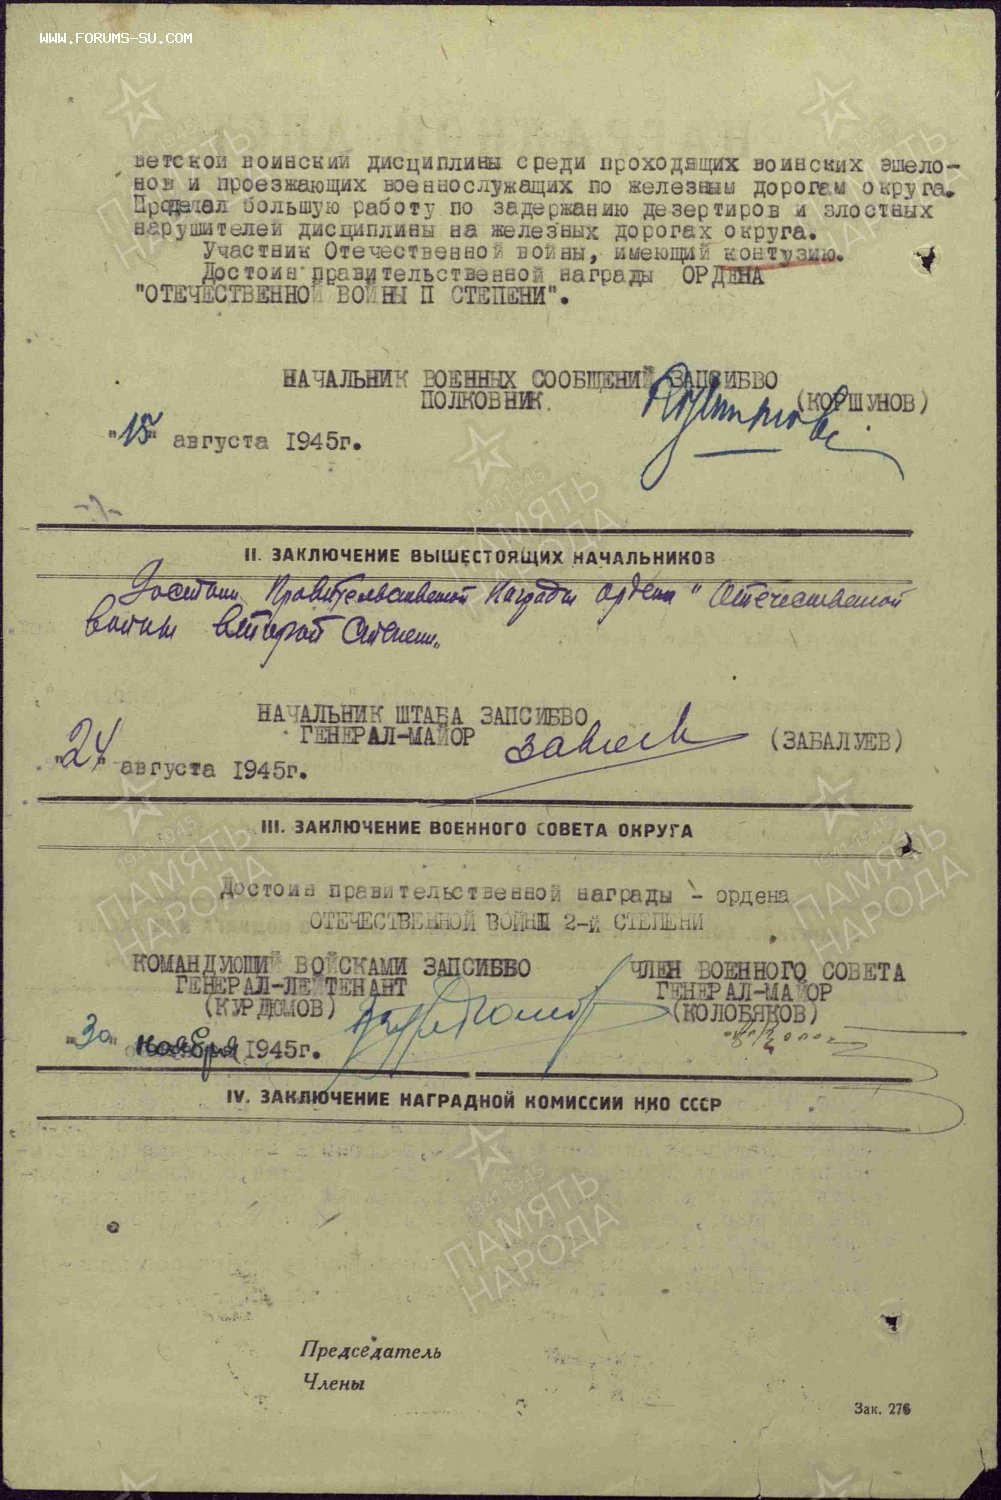 WWW.FORUMS-SU.COM
ветской воинский дисциплины среди проходящих воинских эшело-
нов и проезжающих военнослужащих по железным дорогам округа.
Проделал большую работу по задержанию дезертиров и злостных
нарушителей дисциплины на железных дорогах округа.
Участник Отечественной войны, имеющий контузию.
Достоин правительственной награды ОРДЕНА
"ОТЕЧЕСТВЕННОЙ ВОЙНЫ П СТЕПЕНИ".
НАЧАЛЬНИК ВОЕННЫХ СООБЩЕНИЙ ЗАПСИБВО
ПОЛКОВНИК (КОРШУНОВ)
"15" августа 1945г.
II. ЗАКЛЮЧЕНИЕ ВЫШЕСТОЯЩИХ НАЧАЛЬНИКОВ
Достоин Правительственной Награды ордена "Отечественной
войны второй степени"
НАЧАЛЬНИК ШТАБА ЗАПСИБВО
ГЕНЕРАЛ-МАЙОР (ЗАБАЛУЕВ)
"24" августа 1945г.
III. ЗАКЛЮЧЕНИЕ ВОЕННОГО СОВЕТА ОКРУГА
Достоин правительственной награды - ордена
ОТЕЧЕСТВЕННОЙ ВОЙНЫ 2-й СТЕПЕНИ
КОМАНДУЮЩИЙ ВОЙСКАМИ ЗАПСИБВО ЧЛЕН ВОЕННОГО СОВЕТА
ГЕНЕРАЛ-ЛЕЙТЕНАНТ ГЕНЕРАЛ-МАЙОР
(КУРДЮМОВ) (КОЛОБЯКОВ)
"30" ноября 1945г.
IV. ЗАКЛЮЧЕНИЕ НАГРАДНОЙ КОМИССИИ НКО СССР
Председатель
Члены
Зак. 276
1941-1945
ПАМЯТЬ
НАРОДА